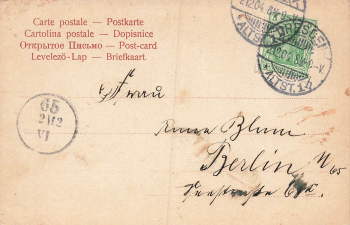 Carte postale — Postkarte
Cartolina postale — Dopisnice
Открытое Письмо — Post-card
Levelező-Lap — Briefkaart.
DRESDEN
ALTST. 14
65
2 1/2
VI
Frau
Anna Blum
Berlin N 65
Seestraße